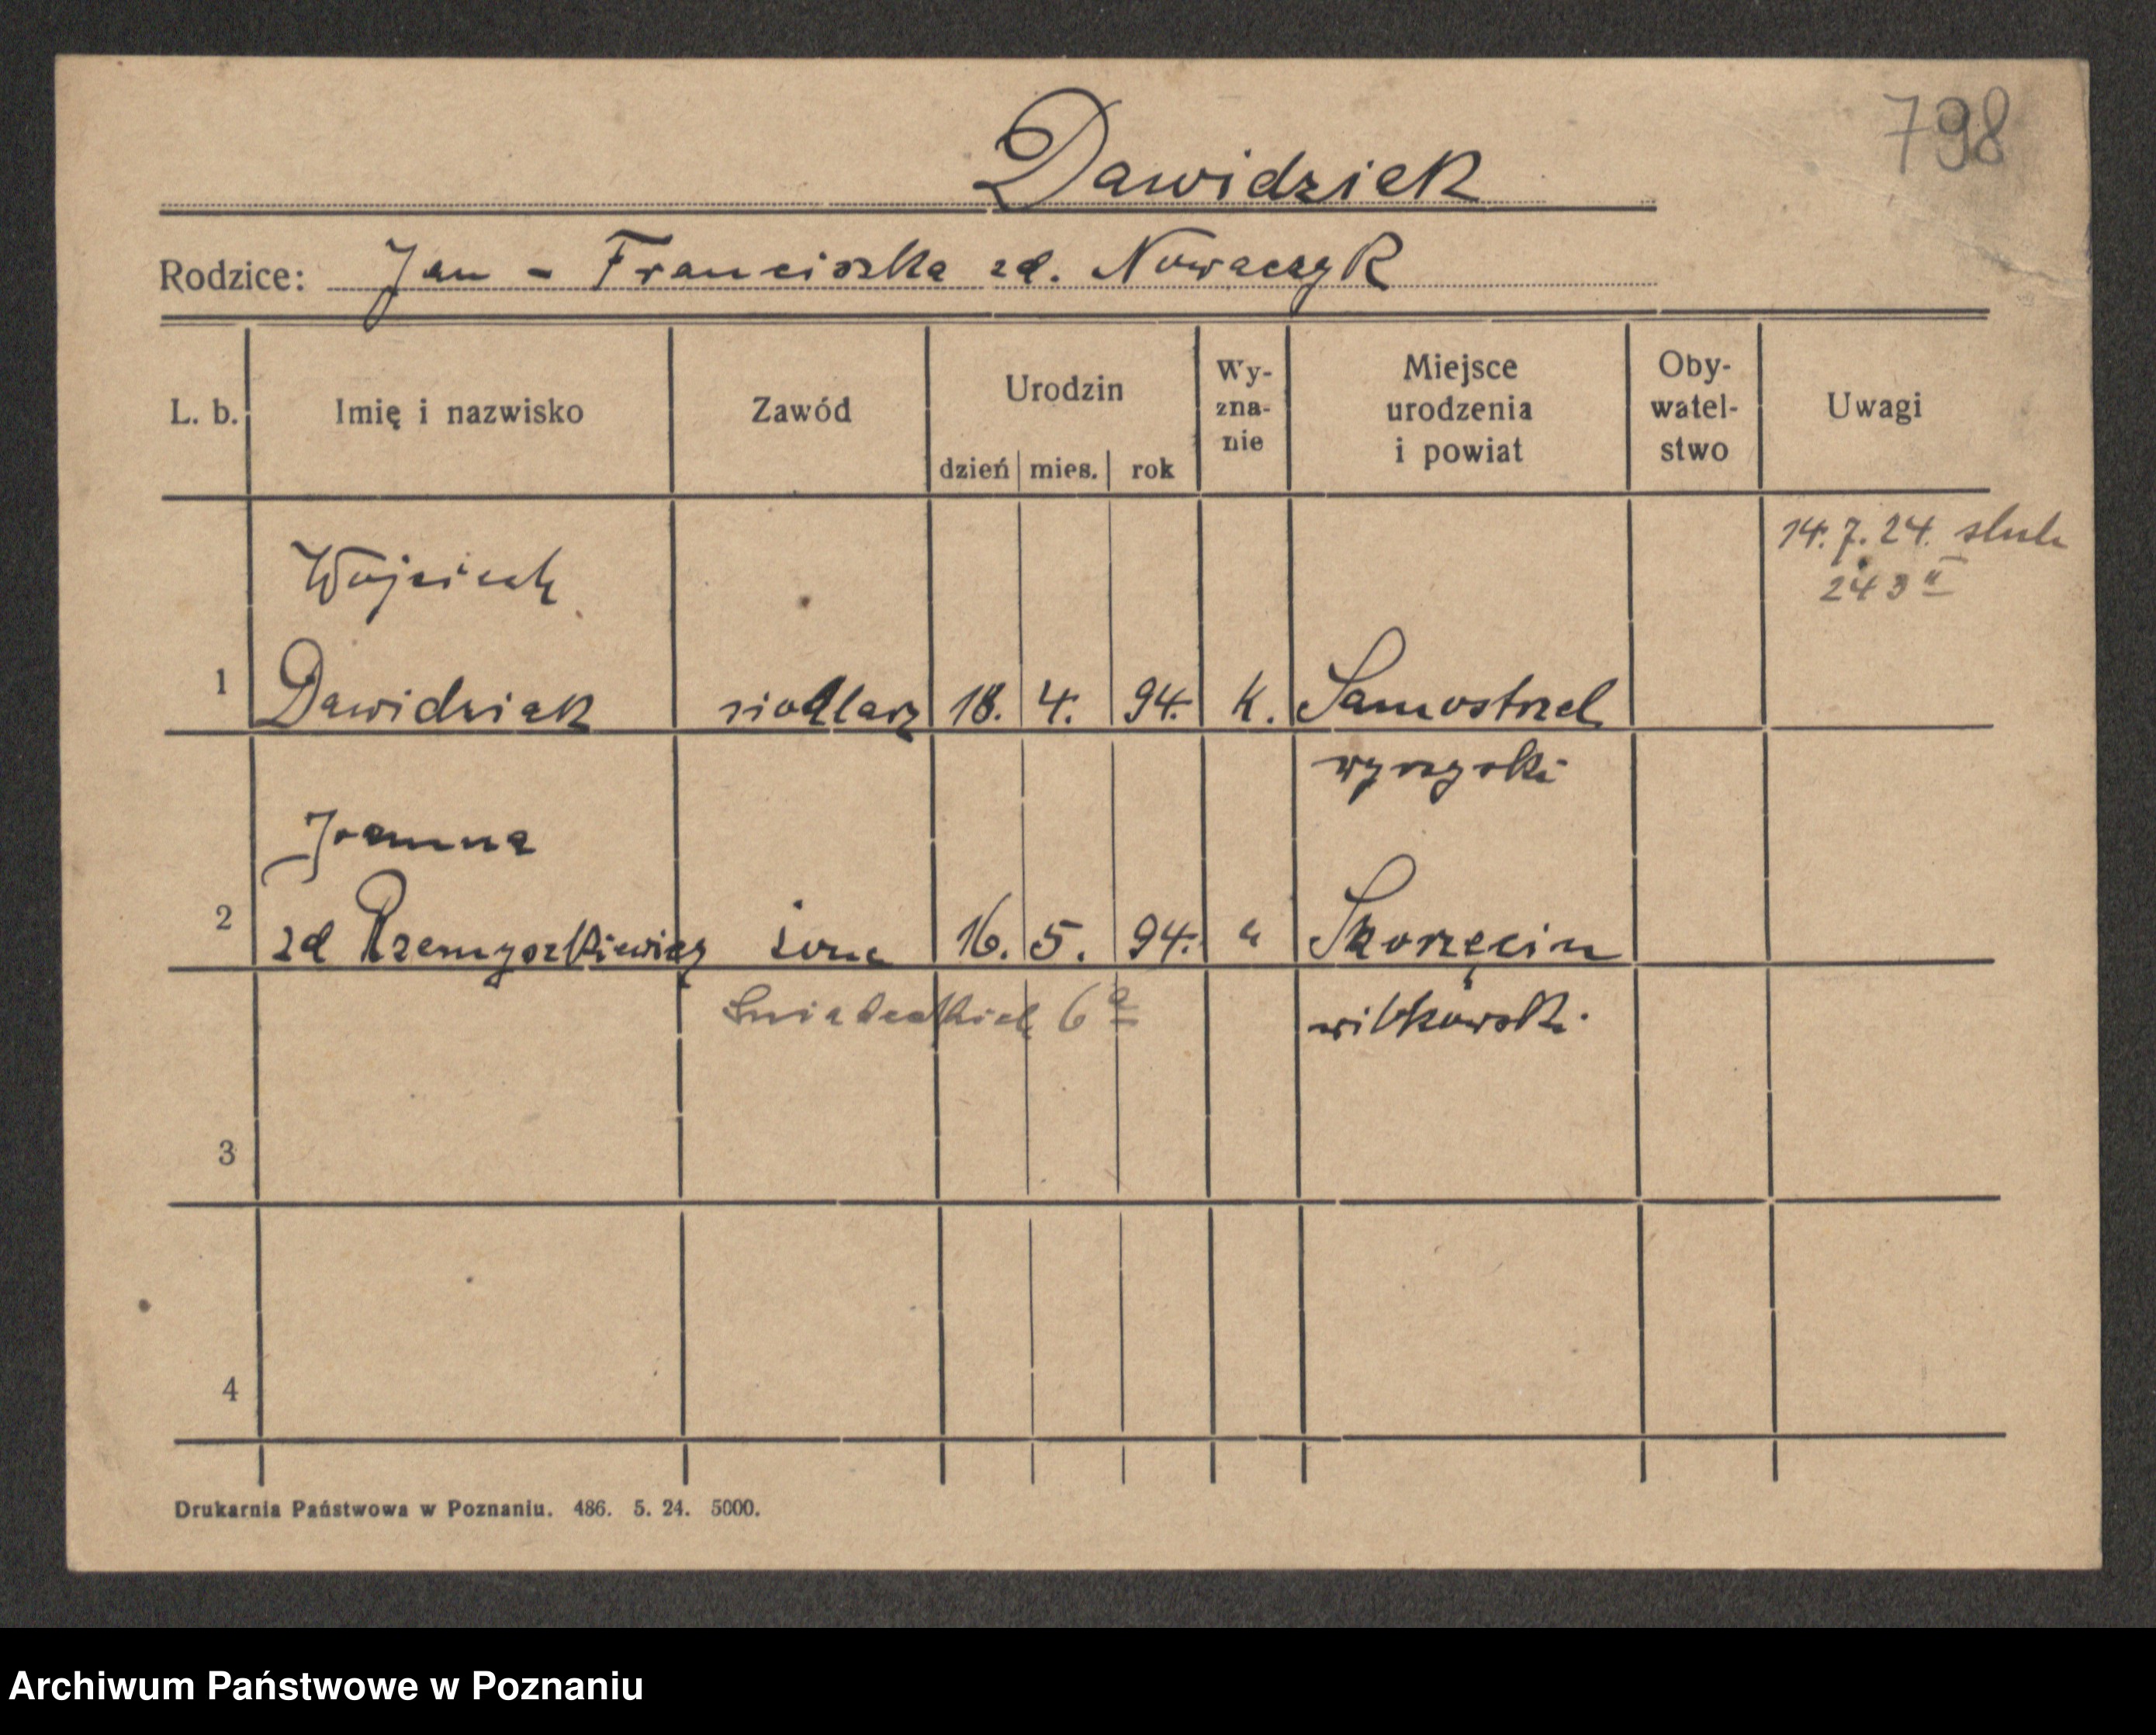 798
Dawidziek
Rodzice: Jan - Franciszka zd. Nowaczyk
L. b. Imię i nazwisko Zawód Urodzin dzień mies. rok Wy-zna-nie Miejsce urodzenia i powiat Oby-watel-stwo Uwagi
14. 7. 24. ślub
243 II
Wojciech
1 Dawidziak siodlarz 18. 4. 94. k. Samostrzel
wyrzyski
Joanna
2 zd Przemyszkiewicz żona 16. 5. 94. " Skorzęcin
Śniadeckich 6a witkowski.
3
4
Drukarnia Państwowa w Poznaniu. 486. 5. 24. 5000.
Archiwum Państwowe w Poznaniu